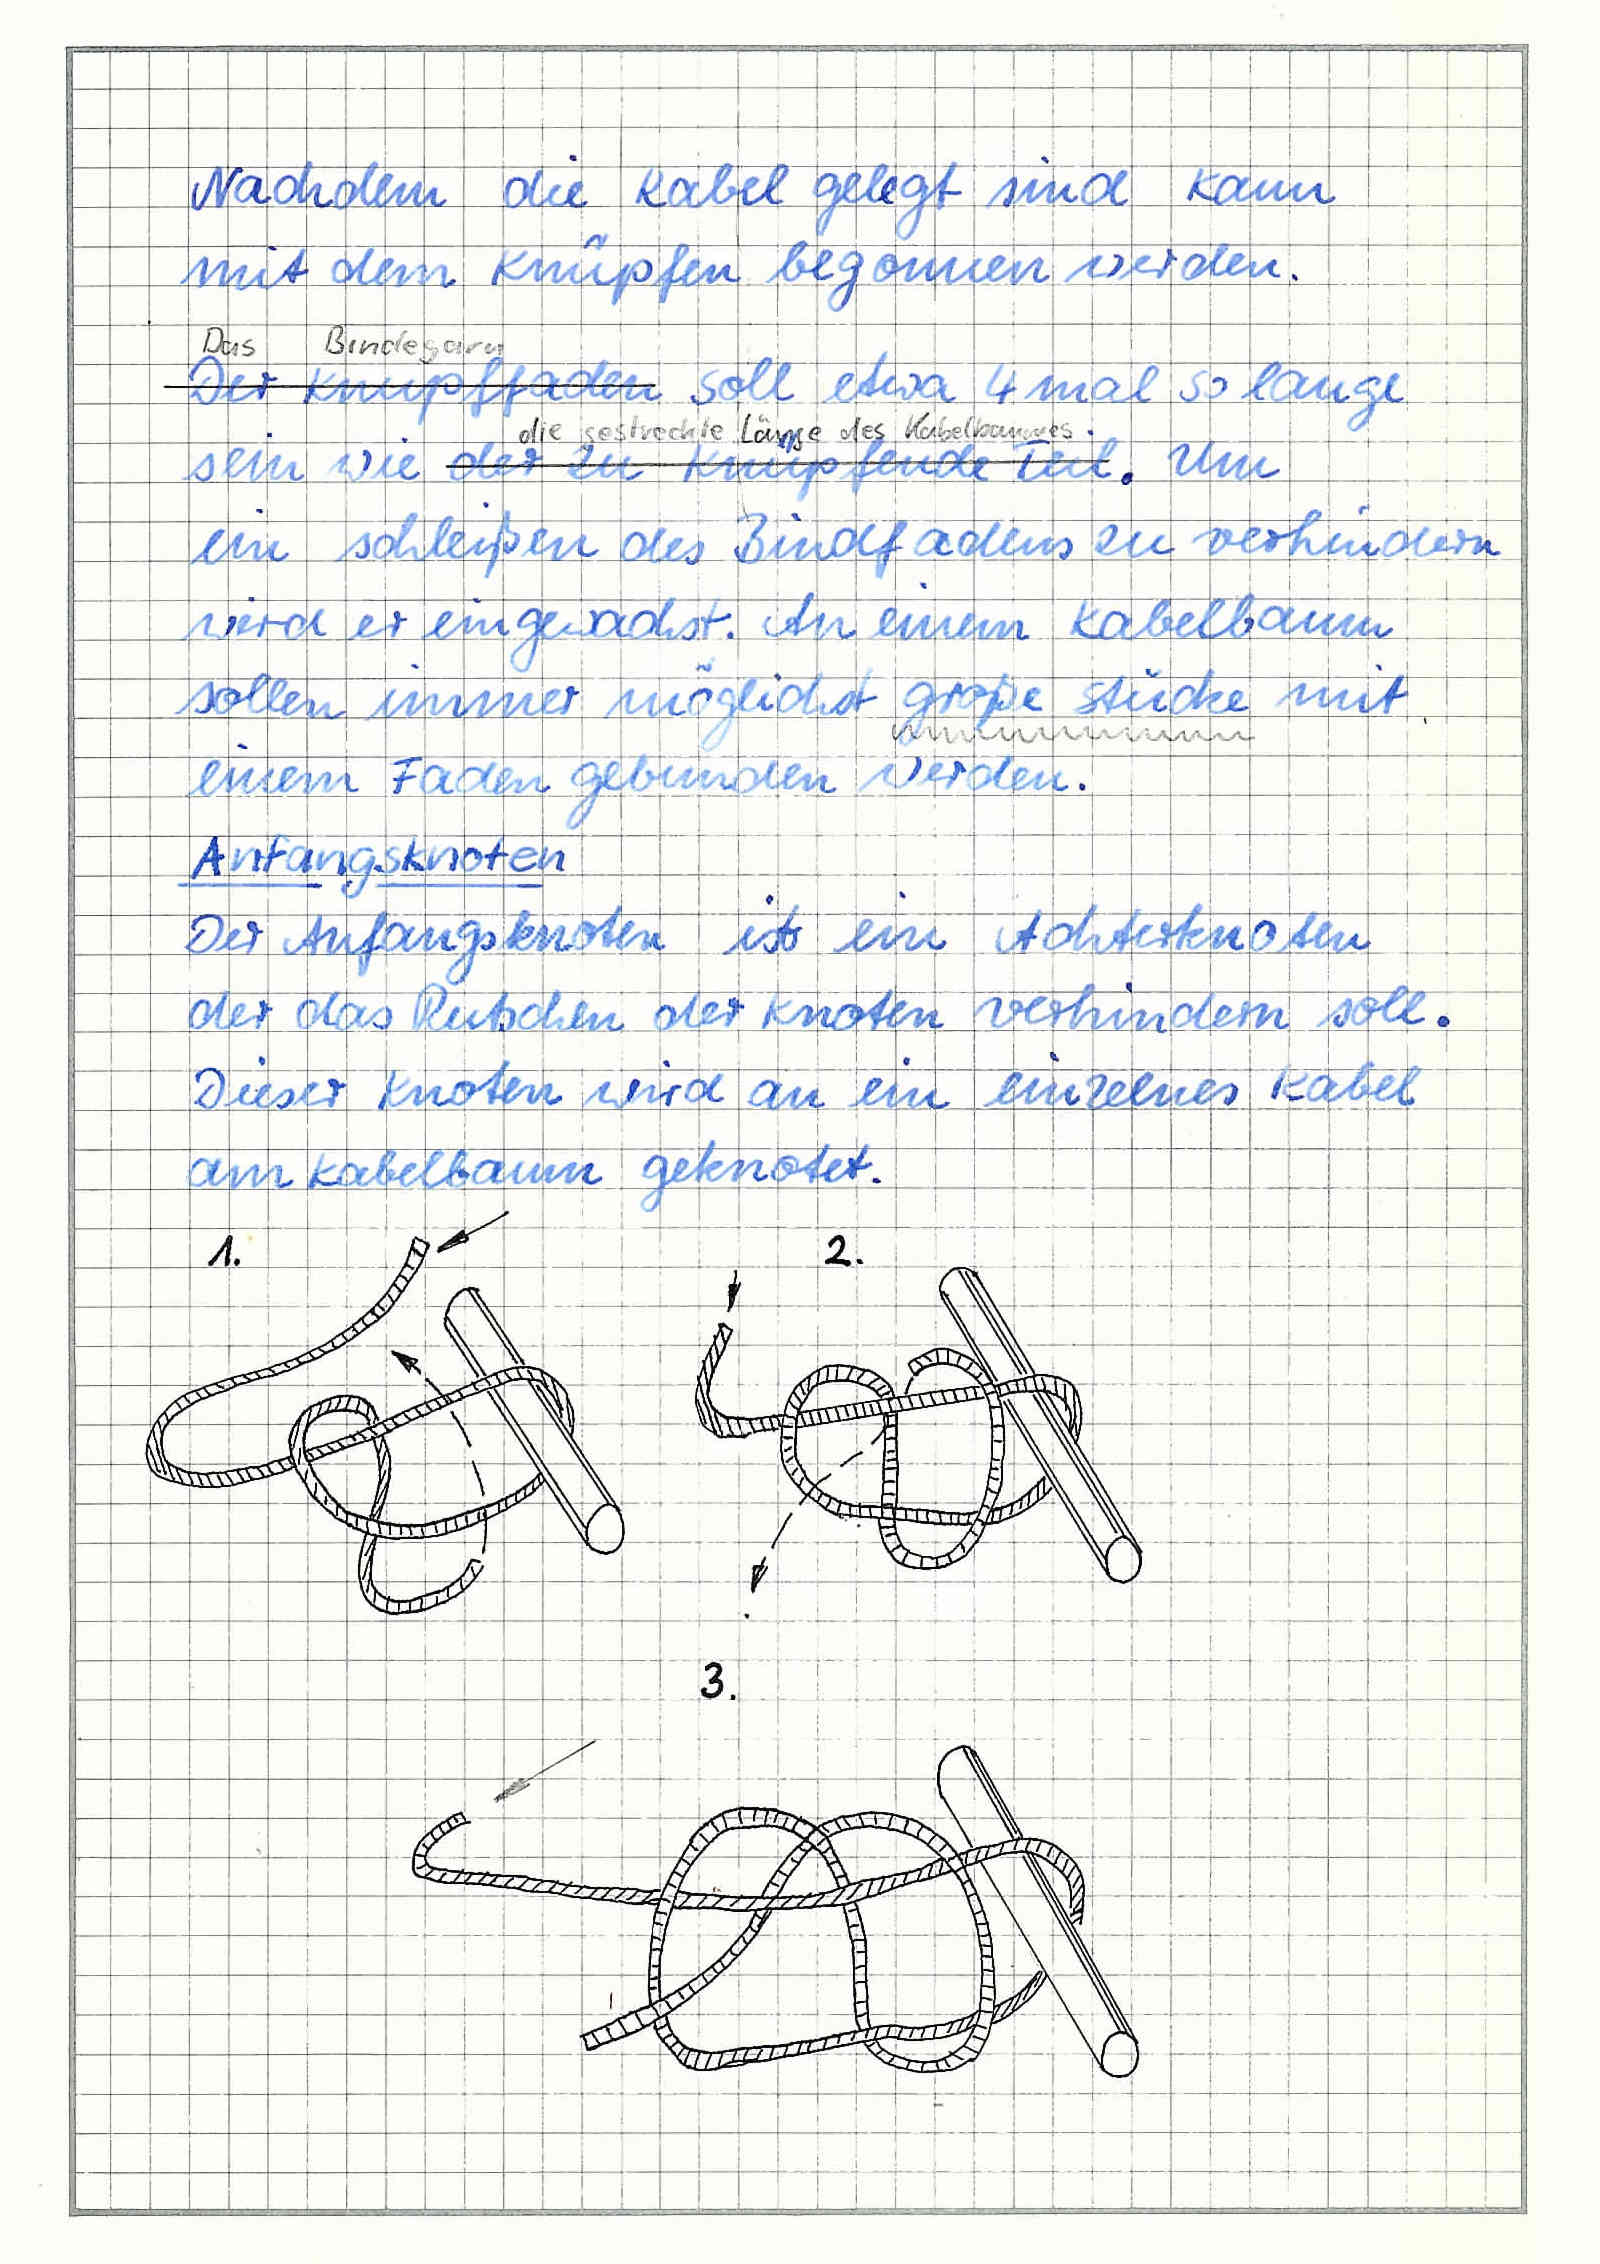 Nachdem die Kabel gelegt sind kann
mit dem Knüpfen begonnen werden.
Das Bindegarn
Der Knüpffaden soll etwa 4 mal so lange
die gestreckte Länge des Kabelbaumes.
sein wie der zu Knüpfende Teil. Um
ein schleißen des Bindfadens zu verhindern
wird er eingewachst. An einem Kabelbaum
sollen immer möglichst große stücke mit
einem Faden gebunden werden.
Anfangsknoten
Der Anfangsknoten ist ein Achterknoten
der das Rutschen der Knoten verhindern soll.
Dieser Knoten wird an ein einzelnes Kabel
am Kabelbaum geknotet.
1.
2.
3.